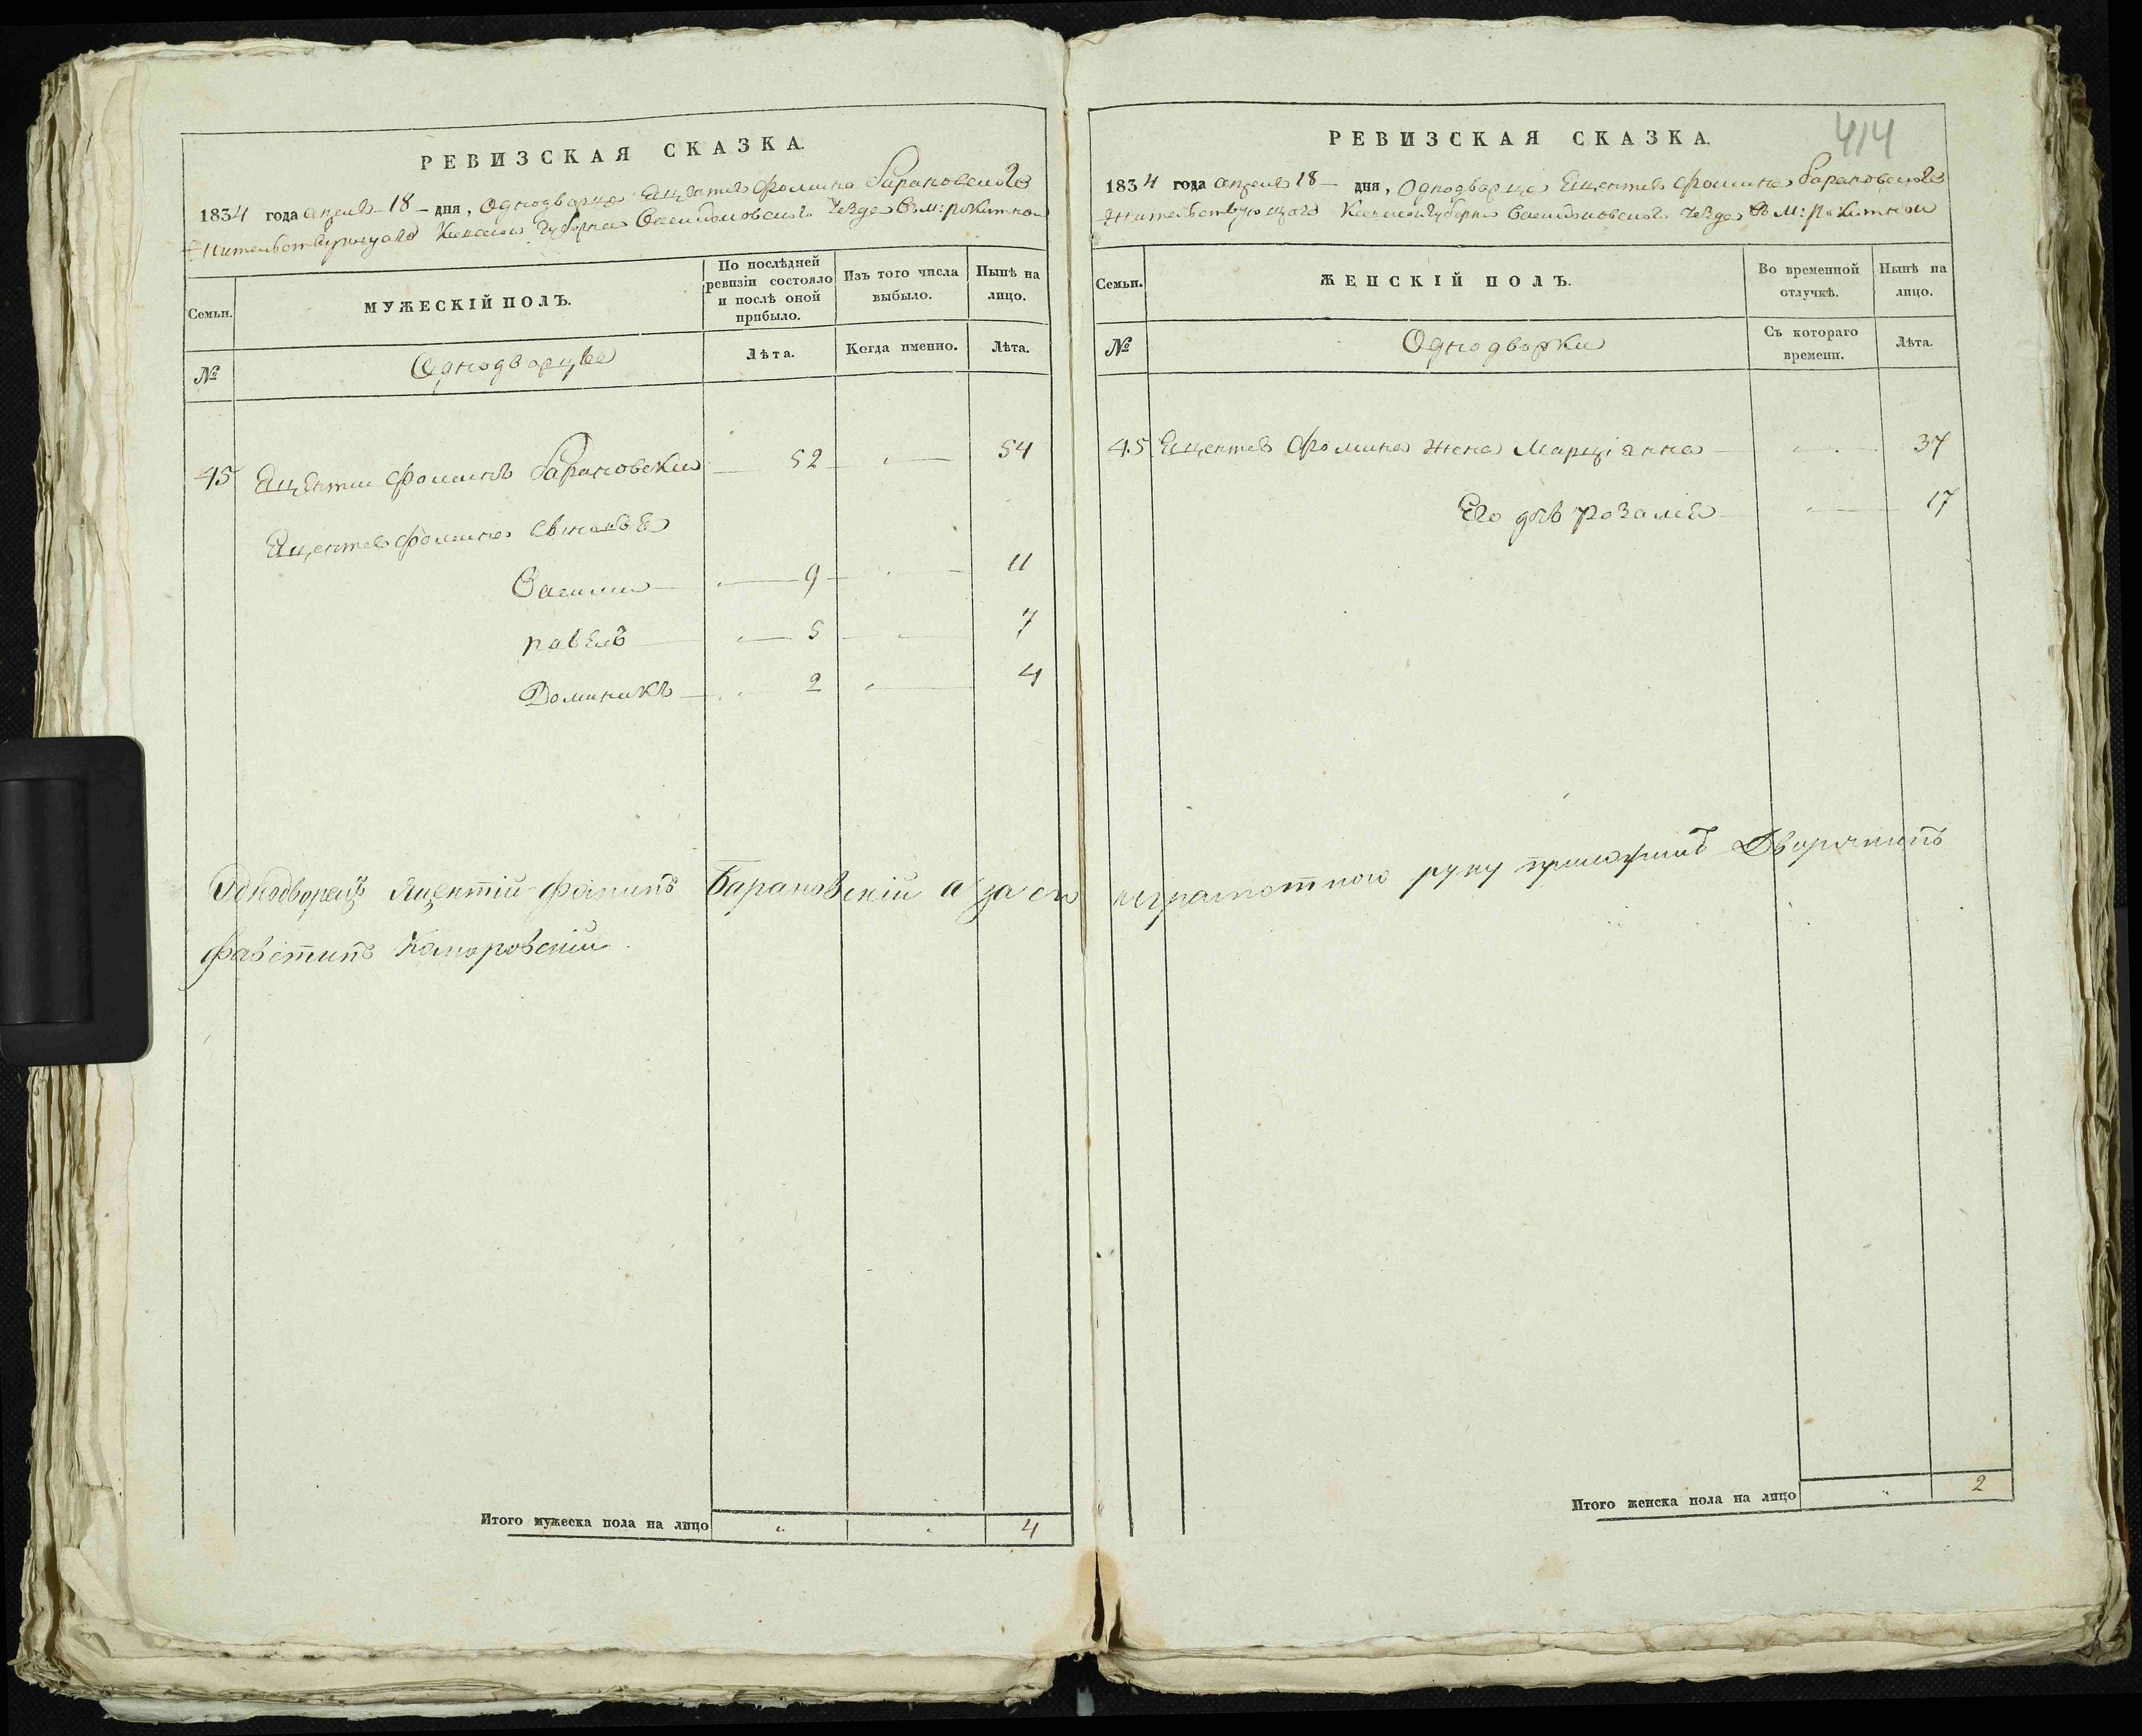 РЕВИЗСКАЯ СКАЗКА.
1834 года апреля 18 – дня, Однодворца Яцентия Фомина Барановского
Жительствующаго Киевской Губернии Васильковского Уезда В м: рокитной
Семьи. МУЖЕСКІЙ ПОЛЪ. По послѣдней ревизіи состояло и послѣ оной прибыло. Изъ того числа выбыло. Нынѣ на лицо.
№ Однодворцы Лѣта. Когда именно. Лѣта.
45 Яцентии Фоминъ Барановски 52 54
Яцентия Фомина Сыновья
Василии 9 11
павелъ 5 7
Доминикъ 2 4
Однодворецъ Яцентій Фоминъ Барановскій а за его неграмотного руку приложилъ Дворянинъ
Фавстинъ Каморовскій
Итого мужеска пола на лицо 4
414
РЕВИЗСКАЯ СКАЗКА.
1834 года апреля 18 – дня, Однодворца Яцентия Фомина Барановского
Жительствующаго Киевской Губернии Васильковского Уезда В м: рокитной
Семьи. ЖЕНСКІЙ ПОЛЪ. Во временной отлучкѣ. Нынѣ на лицо.
№ Однодворки Съ котораго времени. Лѣта.
45 Яцентия Фомина жена Марціанна 37
Его дчь розалия 17
Итого женска пола на лицо 2